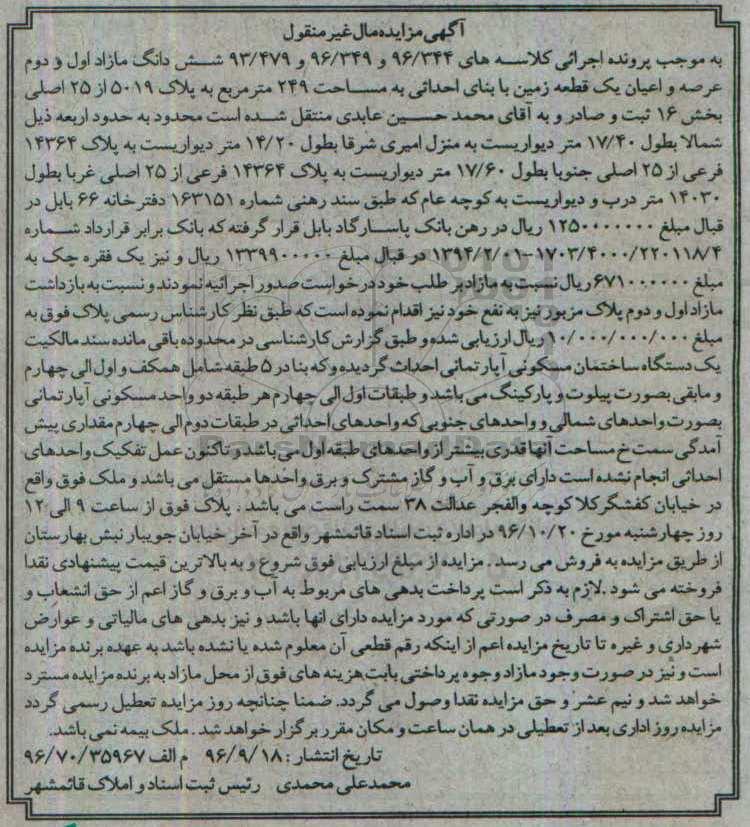 آگهی مزایده مال غیر منقول
به موجب پرونده اجرائی کلاسه های ۹۶/۳۴۴ و ۹۶/۳۴۹ و ۹۳/۴۷۹ شش دانگ مازاد اول و دوم
عرصه و اعیان یک قطعه زمین با بنای احداثی به مساحت ۲۴۹ مترمربع به پلاک ۵۰۱۹ از ۲۵ اصلی
بخش ۱۶ ثبت و صادر و به آقای محمد حسین عابدی منتقل شده است محدود به حدود اربعه ذیل
شمالا بطول ۱۷/۴۰ متر دیواریست به منزل امیری شرقا بطول ۱۴/۲۰ متر دیواریست به پلاک ۱۴۳۶۴
فرعی از ۲۵ اصلی جنوبا بطول ۱۷/۶۰ متر دیواریست به پلاک ۱۴۳۶۴ فرعی از ۲۵ اصلی غربا بطول
۱۴۰۳۰ متر درب و دیواریست به کوچه عام که طبق سند رهنی شماره ۱۶۳۱۵۱ دفترخانه ۶۶ بابل در
قبال مبلغ ۱۲۵۰۰۰۰۰۰۰ ریال در رهن بانک پاسارگاد بابل قرار گرفته که بانک برابر قرارداد شماره
۱۳۹۴/۲/۰۱-۱۷۰۳/۴۰۰۰/۲۲۰۱۱۸/۴ در قبال مبلغ ۱۳۳۹۹۰۰۰۰۰ ریال و نیز یک فقره چک به
مبلغ ۶۷۱۰۰۰۰۰۰ ریال نسبت به مازاد بر طلب خود درخواست صدور اجرائیه نمودند و نسبت به بازداشت
مازاد اول و دوم پلاک مزبور نیز به نفع خود نیز اقدام نموده است که طبق نظر کارشناس رسمی پلاک فوق به
مبلغ ۱۰/۰۰۰/۰۰۰/۰۰۰ ریال ارزیابی شده و طبق گزارش کارشناسی در محدوده باقی مانده سند مالکیت
یک دستگاه ساختمان مسکونی آپارتمانی احداث گردیده و که بنا در ۵ طبقه شامل همکف و اول الی چهارم
و مابقی بصورت پیلوت و پارکینگ می باشد و طبقات اول الی چهارم هر طبقه دو واحد مسکونی آپارتمانی
بصورت واحدهای شمالی و واحدهای جنوبی که واحدهای احداثی در طبقات دوم الی چهارم مقداری پیش
آمدگی سمت خ مساحت آنها قدری بیشتر از واحدهای طبقه اول می باشد و تاکنون عمل تفکیک واحدهای
احداثی انجام نشده است دارای برق و آب و گاز مشترک و برق واحدها مستقل می باشد و ملک فوق واقع
در خیابان کفشگرکلا کوچه والفجر عدالت ۳۸ سمت راست می باشد . پلاک فوق از ساعت ۹ الی ۱۲
روز چهارشنبه مورخ ۹۶/۱۰/۲۰ در اداره ثبت اسناد قائمشهر واقع در آخر خیابان جویبار نبش بهارستان
از طریق مزایده به فروش می رسد . مزایده از مبلغ ارزیابی فوق شروع و به بالاترین قیمت پیشنهادی نقدا
فروخته می شود .لازم به ذکر است پرداخت بدهی های مربوط به آب و برق و گاز اعم از حق انشعاب و
یا حق اشتراک و مصرف در صورتی که مورد مزایده دارای انها باشد و نیز بدهی های مالیاتی و عوارض
شهرداری و غیره تا تاریخ مزایده اعم از اینکه رقم قطعی آن معلوم شده یا نشده باشد به عهده برنده مزایده
است و نیز در صورت وجود مازاد وجوه پرداختی بابت هزینه های فوق از محل مازاد به برنده مزایده مسترد
خواهد شد و نیم عشر و حق مزایده نقدا وصول می گردد. ضمنا چنانچه روز مزایده تعطیل رسمی گردد
مزایده روز اداری بعد از تعطیلی در همان ساعت و مکان مقرر برگزار خواهد شد . ملک بیمه نمی باشد.
تاریخ انتشار : ۹۶/۹/۱۸ م الف ۹۶/۷۰/۳۵۹۶۷
محمدعلی محمدی رئیس ثبت اسناد و املاک قائمشهر